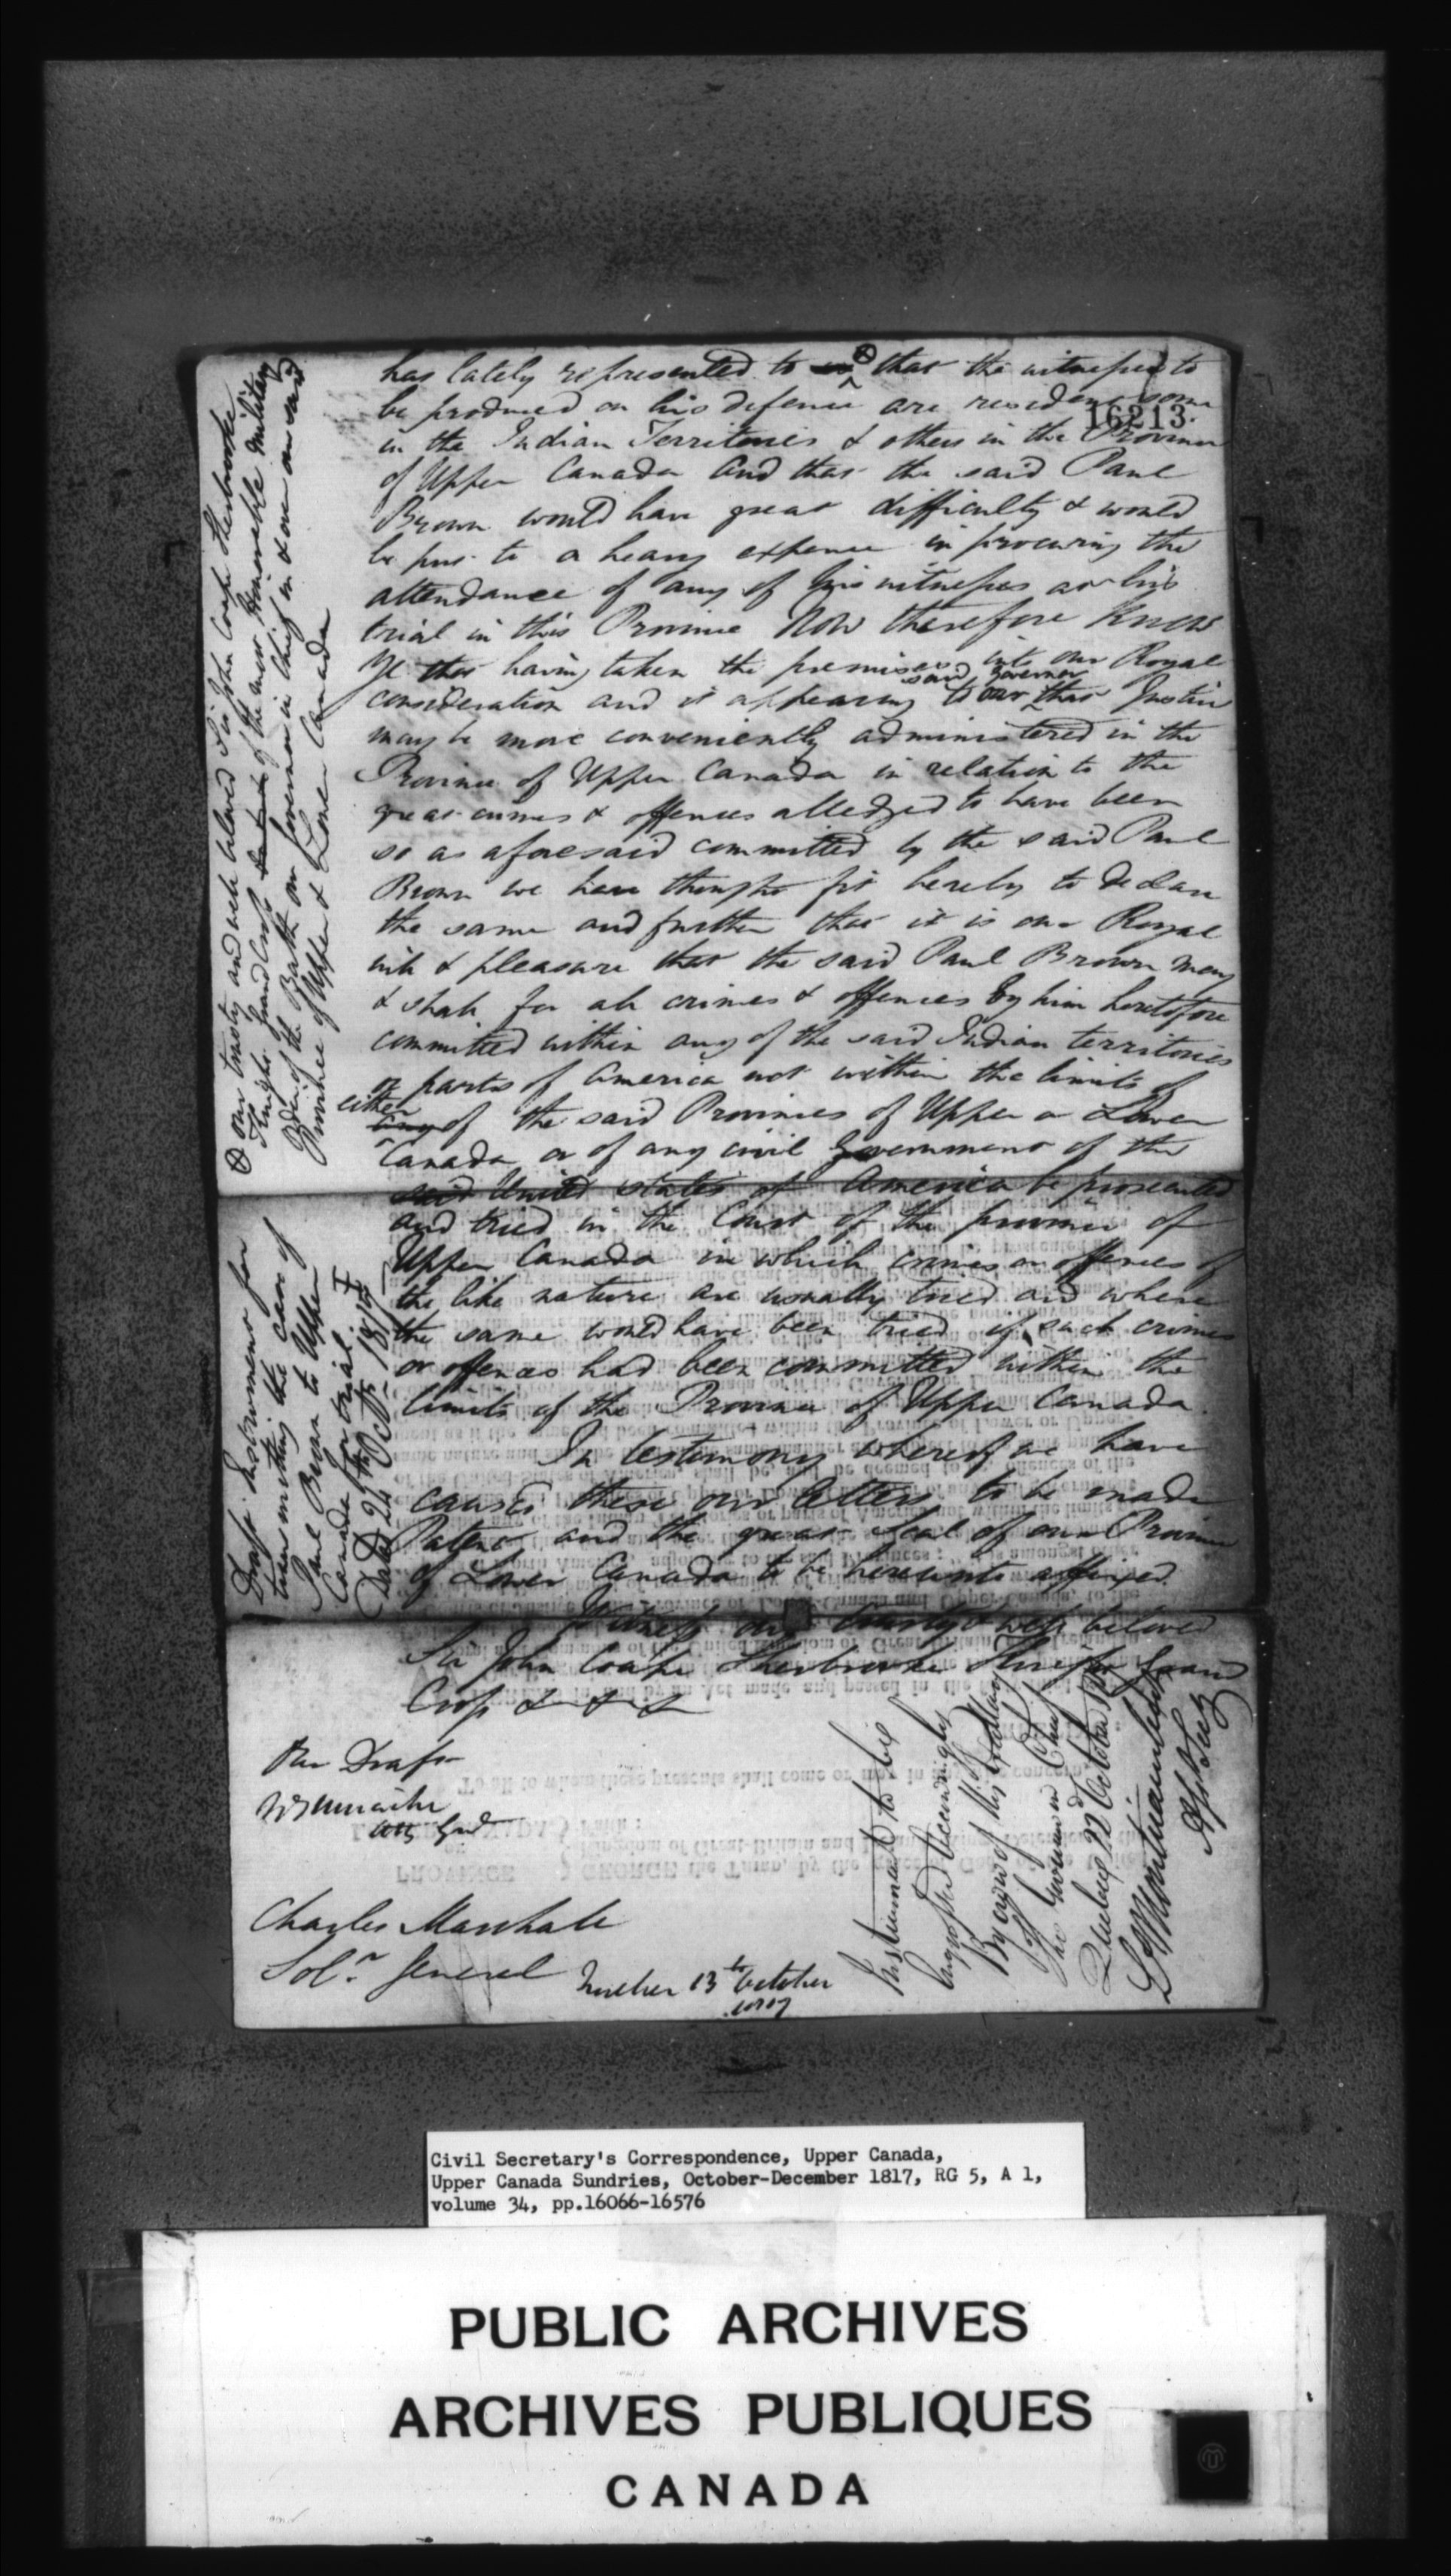 has lately represented to us ⊗ that the witnesses to
16213.
be produced on his defence are resident some
in the Indian Territories & others in the Province
of Upper Canada and that the said Paul
Brown would have great difficulty & would
be put to a heavy expence in procuring the
attendance of any of his witnesses at his
trial in this Province Now therefore Know
Ye that having taken the premises into our Royal
said Governor
consideration and it appearing to our that Justice
may be more conveniently administered in the
Province of Upper Canada in relation to the
great crimes & offences alledged to have been
so as aforesaid committed by the said Paul
Brown we have thought fit hereby to declare
the same and further that it is our Royal
will & pleasure that the said Paul Brown may
& shall for all crimes & offences by him heretofore
committed within any of the said Indian territories
or parts of America not within the limits of
either
any of the said Provinces of Upper or Lower
Canada or of any civil Government of the
said United States of America be prosecuted
and tried in the Court of the province of
Upper Canada in which crimes or offences of
the like nature are usually tried and where
the same would have been tried if such crimes
or offences had been committed within the
limits of the Province of Upper Canada.
In testimony whereof we have
caused these our letters to be made
Patent and the great Seal of our Province
of Lower Canada to be hereunto affixed.
Witness our trusty & well beloved
Sir John Coape Sherbrooke Knight Grand
Cross & & &
⊗ our trusty and well beloved Sir John Coape Sherbrooke
Knight Grand Cross of the most Honorable Military
Order of the Bath our Governor in Chief in & over our said
Province of Upper & Lower Canada
Draft Instrument for
transmitting the case of
Paul Brown to Upper
Canada for trial.
Dated 24th Octr. 1817
Per Draft
Atty Genl
Charles Marshall
Solr. General
Quebec 13th October
1817
Instrument to be
engrossed accordingly
By order of His Excellency
the Governor in Chief
Quebec 22 October
Civil Secretary's Correspondence, Upper Canada,
Upper Canada Sundries, October-December 1817, RG 5, A 1,
volume 34, pp.16066-16576
PUBLIC ARCHIVES
ARCHIVES PUBLIQUES
CANADA